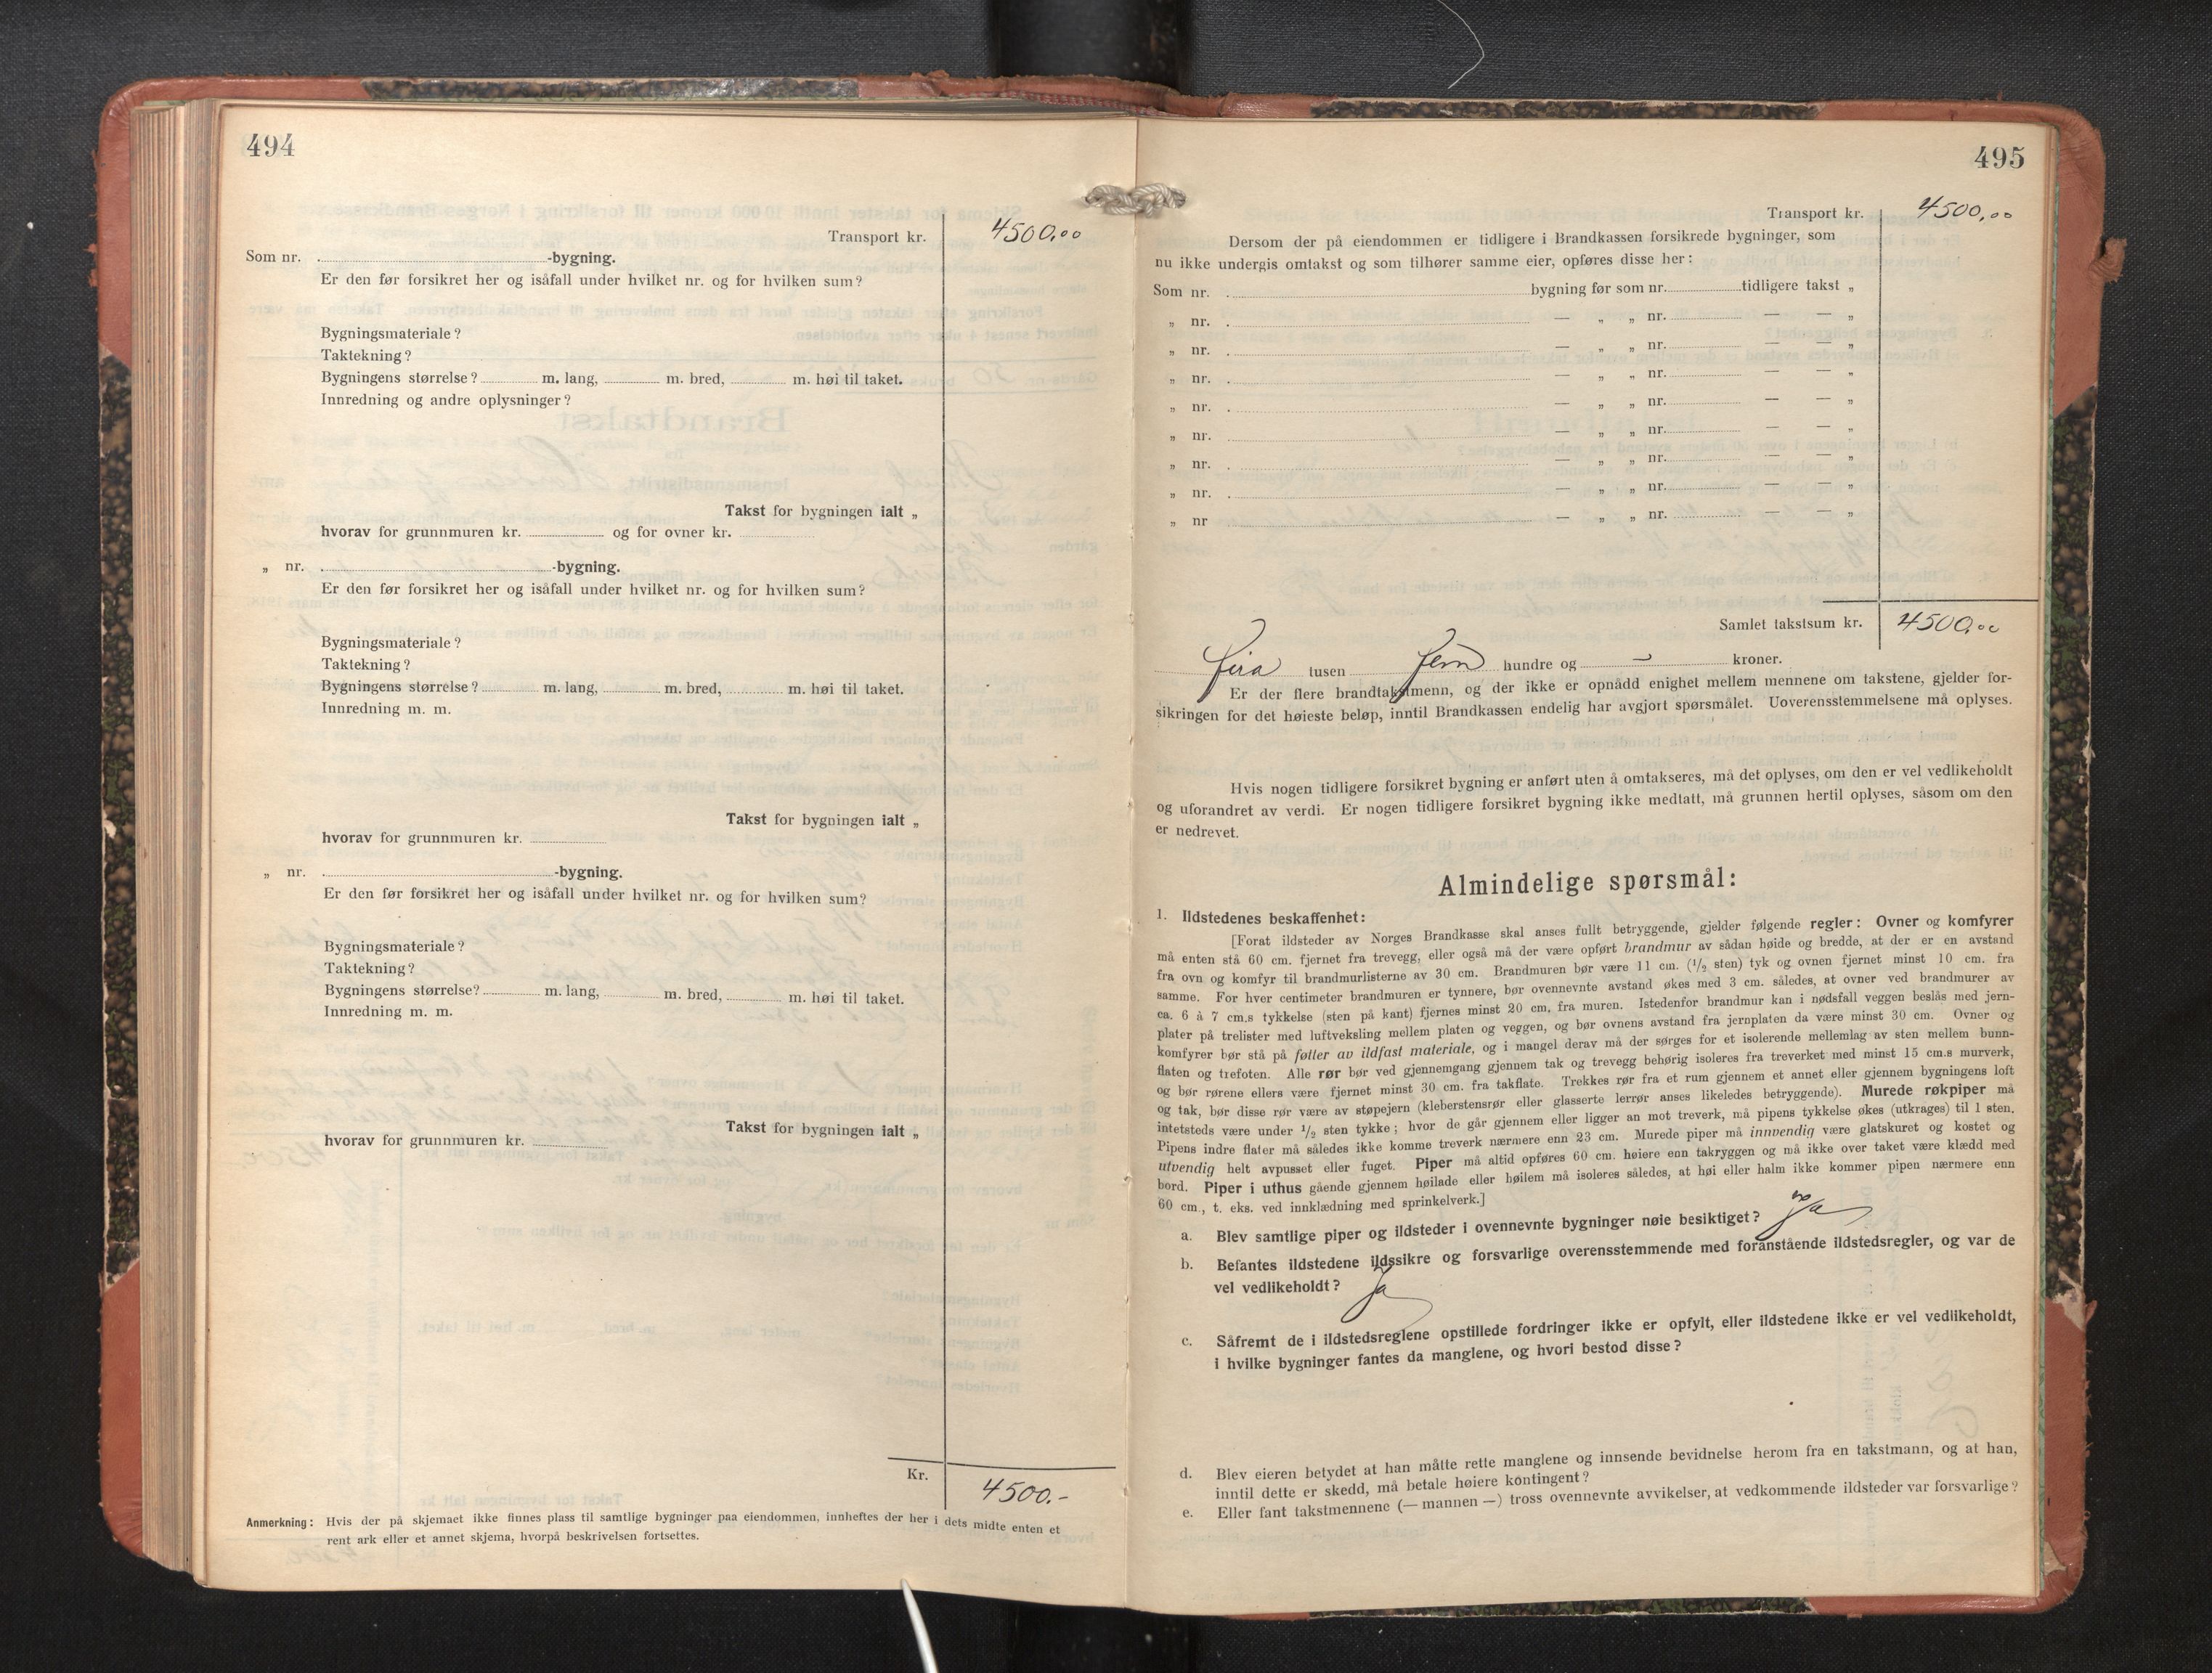 494
Transport kr. 4500,00
Som nr. -bygning.
Er den før forsikret her og isåfall under hvilket nr. og for hvilken sum?
Bygningsmateriale?
Taktekning?
Bygningens størrelse? m. lang, m. bred, m. høi til taket.
Innredning og andre oplysninger?
Takst for bygningen ialt „
hvorav for grunnmuren kr. og for ovner kr.
„ nr. -bygning.
Er den før forsikret her og isåfall under hvilket nr. og for hvilken sum?
Bygningsmateriale?
Taktekning?
Bygningens størrelse? m. lang, m. bred, m. høi til taket.
Innredning m. m.
Takst for bygningen ialt „
hvorav for grunnmuren kr.
„ nr. -bygning.
Er den før forsikret her og isåfall under hvilket nr. og for hvilken sum?
Bygningsmateriale?
Taktekning?
Bygningens størrelse? m. lang, m. bred, m. høi til taket.
Innredning m. m.
Takst for bygningen ialt „
hvorav for grunnmuren kr.
Kr. 4500.-
Anmerkning: Hvis der på skjemaet ikke finnes plass til samtlige bygninger paa eiendommen, innheftes der her i dets midte enten et
rent ark eller et annet skjema, hvorpå beskrivelsen fortsettes.
495
Transport kr. 4500,00
Dersom der på eiendommen er tidligere i Brandkassen forsikrede bygninger, som
nu ikke undergis omtakst og som tilhører samme eier, opføres disse her:
Som nr. bygning før som nr. tidligere takst „
„ nr. — „ „ nr. — — „
„ nr. — „ „ nr. — — „
„ nr. — „ „ nr. — — „
„ nr. — „ „ nr. — — „
„ nr. — „ „ nr. — — „
„ nr. — „ „ nr. — — „
„ nr. — „ „ nr. — — „
„ nr — „ „ nr. — — „
Samlet takstsum kr. 4500,00
fira tusen fem hundre og — kroner.
Er der flere brandtakstmenn, og der ikke er opnådd enighet mellem mennene om takstene, gjelder for-
sikringen for det høieste beløp, inntil Brandkassen endelig har avgjort spørsmålet. Uoverensstemmelsene må oplyses.
Hvis nogen tidligere forsikret bygning er anført uten å omtakseres, må det oplyses, om den er vel vedlikeholdt
og uforandret av verdi. Er nogen tidligere forsikret bygning ikke medtatt, må grunnen hertil oplyses, såsom om den
er nedrevet.
Almindelige spørsmål:
1. Ildstedenes beskaffenhet:
[Forat ildsteder av Norges Brandkasse skal anses fullt betryggende, gjelder følgende regler: Ovner og komfyrer
må enten stå 60 cm. fjernet fra trevegg, eller også må der være opført brandmur av sådan høide og bredde, at der er en avstand
fra ovn og komfyr til brandmurlisterne av 30 cm. Brandmuren bør være 11 cm. (1/2 sten) tyk og ovnen fjernet minst 10 cm. fra
samme. For hver centimeter brandmuren er tynnere, bør ovennevnte avstand økes med 3 cm. således, at ovner ved brandmurer av
ca. 6 à 7 cm.s tykkelse (sten på kant) fjernes minst 20 cm. fra muren. Istedenfor brandmur kan i nødsfall veggen beslås med jern-
plater på trelister med luftveksling mellem platen og veggen, og bør ovnens avstand fra jernplaten da være minst 30 cm. Ovner og
komfyrer bør stå på føtter av ildfast materiale, og i mangel derav må der sørges for et isolerende mellemlag av sten mellem bunn-
flaten og trefoten. Alle rør bør ved gjennemgang gjennem tak og trevegg behørig isoleres fra treverket med minst 15 cm.s murverk,
og bør rørene ellers være fjernet minst 30 cm. fra takflate. Trekkes rør fra et rum gjennem et annet eller gjennem bygningens loft
og tak, bør disse rør være av støpejern (kleberstensrør eller glasserte lerrør anses likeledes betryggende). Murede røkpiper må
intetsteds være under 1/2 sten tykke; hvor de går gjennem eller ligger an mot treverk, må pipens tykkelse økes (utkrages) til 1 sten.
Pipens indre flater må således ikke komme treverk nærmere enn 23 cm. Murede piper må innvendig være glatskuret og kostet og
utvendig helt avpusset eller fuget. Piper må altid opføres 60 cm. høiere enn takryggen og må ikke over taket være klædd med
bord. Piper i uthus gående gjennem høilade eller høilem må isoleres således, at høi eller halm ikke kommer pipen nærmere enn
60 cm., t. eks. ved innklædning med sprinkelverk.]
a. Blev samtlige piper og ildsteder i ovennevnte bygninger nøie besiktiget? Ja
b. Befantes ildstedene ildssikre og forsvarlige overensstemmende med foranstående ildstedsregler, og var de
vel vedlikeholdt? Ja
c. Såfremt de i ildstedsreglene opstillede fordringer ikke er opfylt, eller ildstedene ikke er vel vedlikeholdt,
i hvilke bygninger fantes da manglene, og hvori bestod disse?
d. Blev eieren betydet at han måtte rette manglene og innsende bevidnelse herom fra en takstmann, og at han,
inntil dette er skedd, må betale høiere kontingent?
e. Eller fant takstmennene (— mannen —) tross ovennevnte avvikelser, at vedkommende ildsteder var forsvarlige?